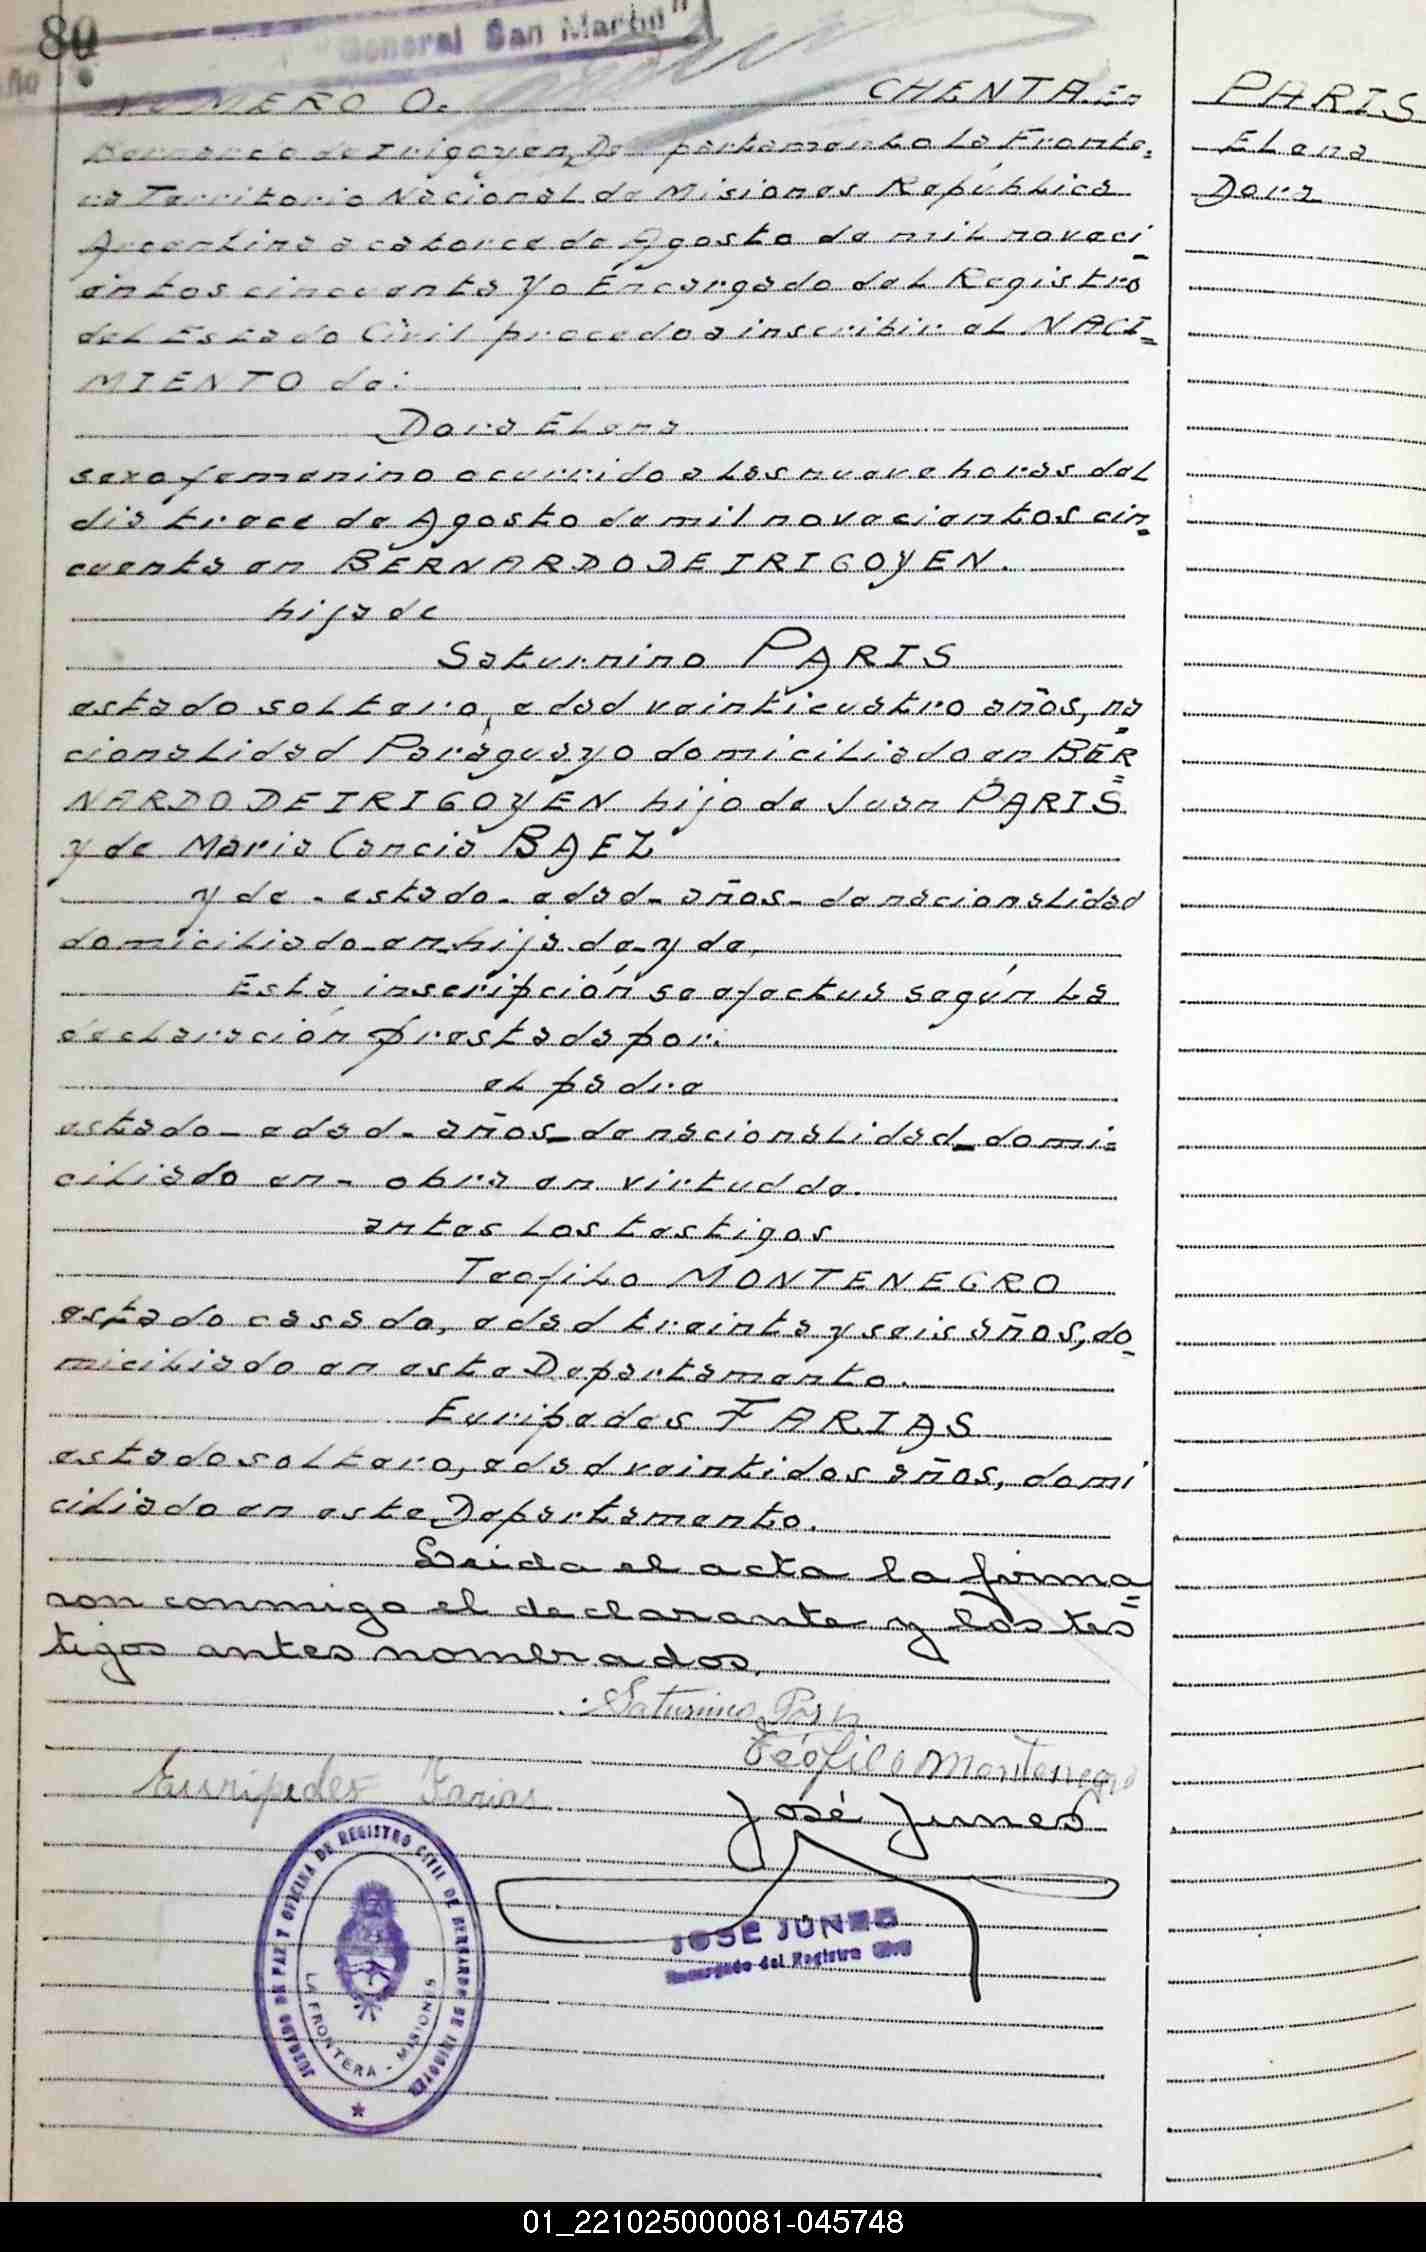 80
"General San Martin"
Año
NUMERO O. CHENTA. En
PARIS
Bernardo de Irigoyen, De partamento La Fronte=
Elena
ra Territorio Nacional de Misiones República
Dora
Argentina a catorce de Agosto de mil noveci
entos cincuenta Yo Encargado del Registro
del Estado Civil procedo a inscribir el NACI=
MIENTO de:
Dora Elena
sexo femenino ocurrido a las nueve horas del
dia trece de Agosto de mil novecientos cin=
cuenta en BERNARDO DE IRIGOYEN.
hija de
Saturnino PARIS
estado soltero, edad veinticuatro años, na
cionalidad Paraguayo domiciliado en BER=
NARDO DE IRIGOYEN hijo de Juan PARIS
y de Maria Cancia BAEZ
y de - estado - edad - años - de nacionalidad
domiciliado en hija de - y de
Esta inscripción se efectua según la
declaración prestada por:
el padre
estado - edad - años - de nacionalidad - domi=
ciliado en - obra en virtud de.
antes los testigos
Teofilo MONTENEGRO
estado casado, edad treinta y seis años, do
miciliado en este Departamento.
Euripedes FARIAS
estado soltero, edad veintidos años, domi
ciliado en este Departamento.
Leida el acta la firma=
ron conmigo el declarante y los tes
tigos antes nombrados.
Saturnino Paris
Teófilo Montenegro
Euripedes Farias
José Junes
JOSE JUNES
Encargado del Registro Civil
JUZGADO DE PAZ Y OFICINA DE REGISTRO CIVIL DE BERNARDO DE IRIGOYEN
LA FRONTERA - MISIONES
01_221025000081-045748